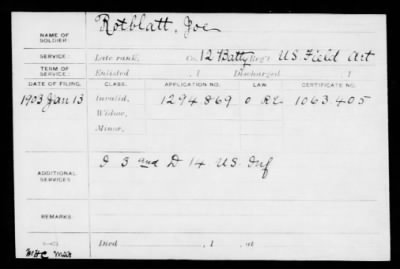 NAME OF SOLDIER: Rotblatt, Joe
SERVICE: Late rank, Co. 12 Batty Reg't US Field Art
TERM OF SERVICE: Enlisted , 1 Discharged , 1
DATE OF FILING. CLASS. APPLICATION NO. LAW. CERTIFICATE NO.
1903 Jan 13 Invalid, 1294.869 O RE. 1063.405
Widow,
Minor,
ADDITIONAL SERVICES: I 3 and D 14 US. Inf
REMARKS:
Died , 1 , at